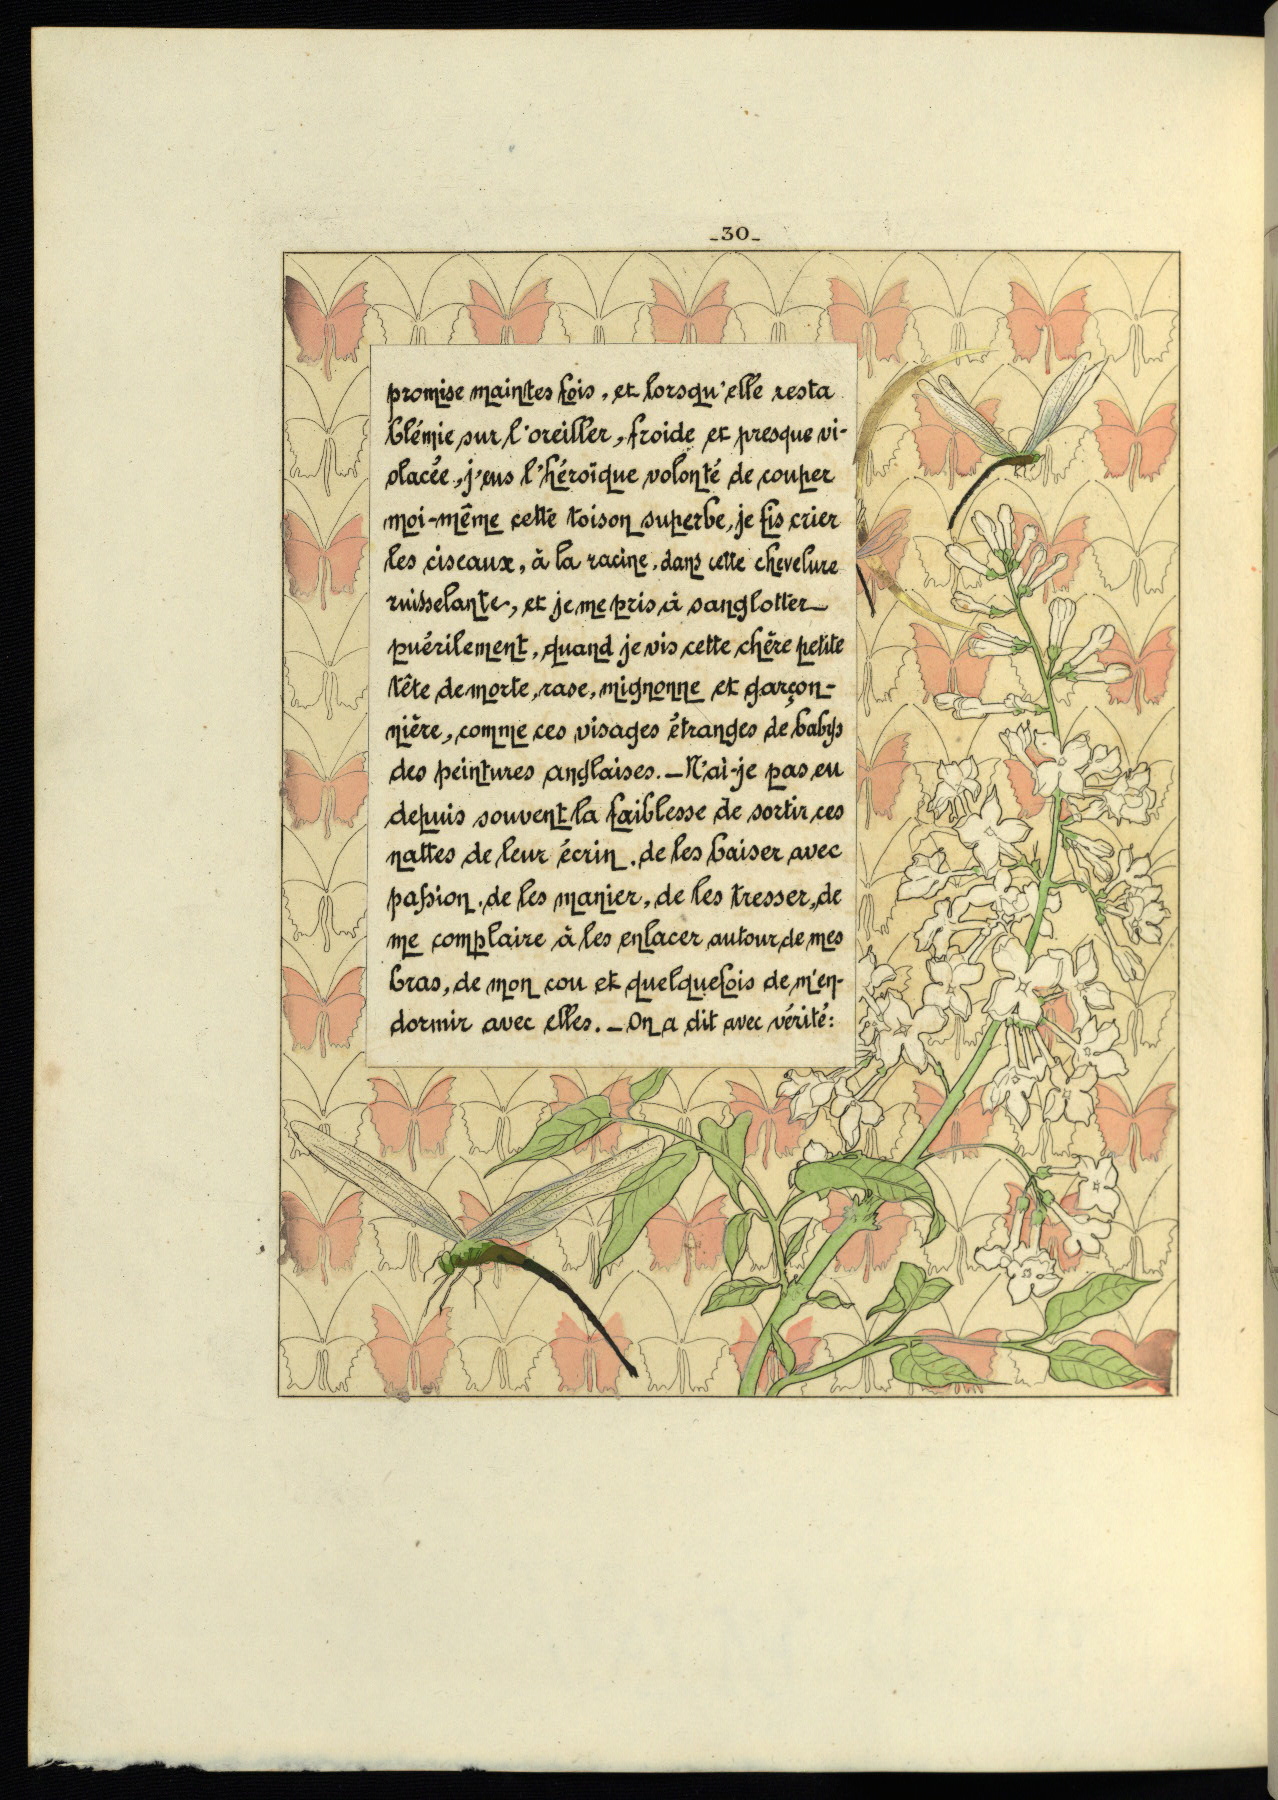 -30-
promise maintes fois, et lorsqu'elle resta
blémie sur l'oreiller, froide et presque vi-
olacée, j'eus l'héroïque volonté de couper
moi-même cette toison superbe, je fis crier
les ciseaux, à la racine, dans cette chevelure
ruisselante, et je me pris à sanglotter
puérilement, quand je vis cette chère petite
tête de morte, rase, mignonne et garçon-
nière, comme ces visages étranges de babys
des peintures anglaises. — N'ai-je pas eu
depuis souvent la faiblesse de sortir ces
nattes de leur écrin, de les baiser avec
passion, de les manier, de les tresser, de
me complaire à les enlacer autour de mes
bras, de mon cou et quelquefois de m'en-
dormir avec elles. — On a dit avec vérité: